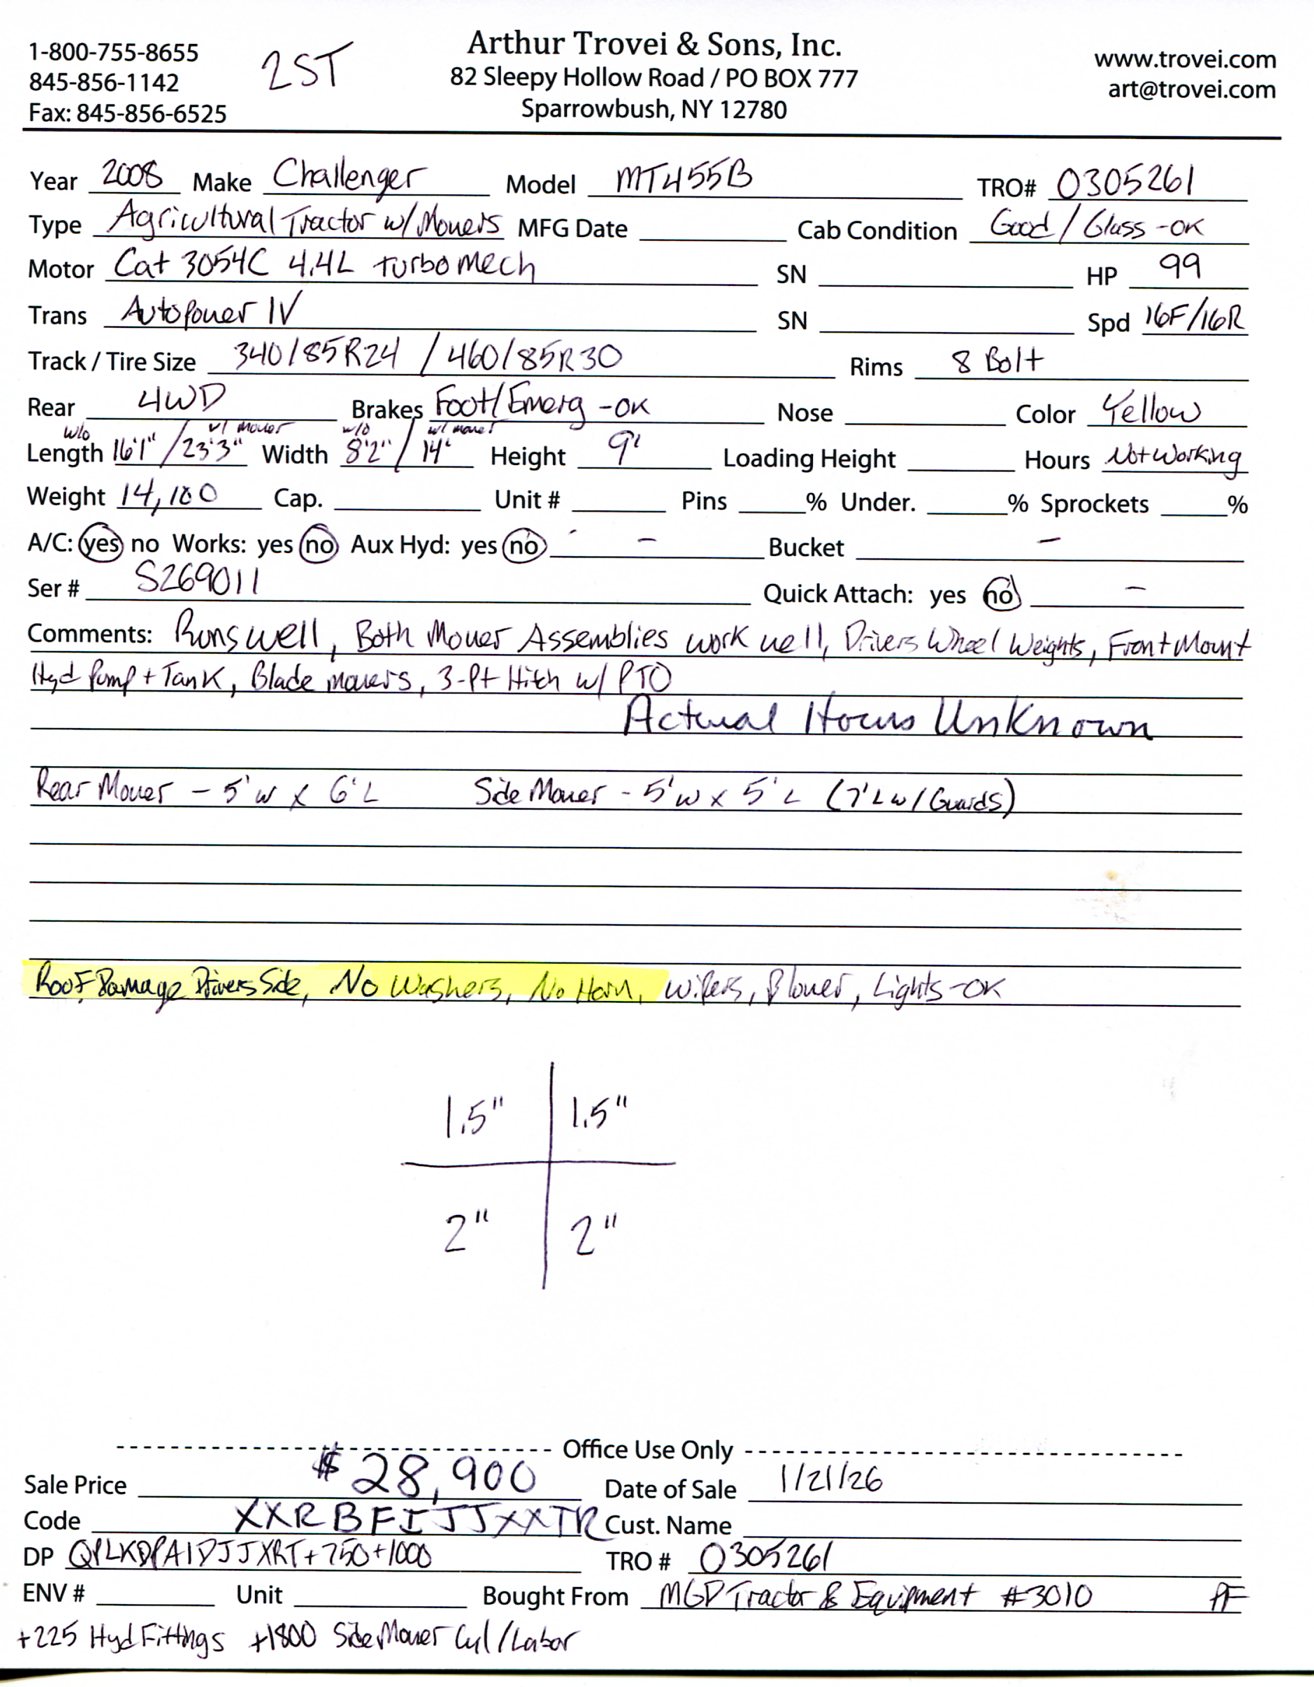 1-800-755-8655
845-856-1142
Fax: 845-856-6525
2ST
Arthur Trovei & Sons, Inc.
82 Sleepy Hollow Road / PO BOX 777
Sparrowbush, NY 12780
www.trovei.com
art@trovei.com
Year 2008 Make Challenger Model MT455B TRO# 0305261
Type Agricultural Tractor w/Mowers MFG Date Cab Condition Good / Glass -OK
Motor Cat 3054C 4.4L turbo mech SN HP 99
Trans AutoPower IV SN Spd 16F/16R
Track / Tire Size 340/85R24 / 460/85R30 Rims 8 Bolt
Rear 4WD Brakes Foot/Emerg -OK Nose Color Yellow
w/o w/ mower w/o w/ mower
Length 16'1" / 23'3" Width 8'2" / 14' Height 9' Loading Height Hours Not Working
Weight 14,100 Cap. Unit # Pins % Under. % Sprockets %
A/C: yes no Works: yes no Aux Hyd: yes no - Bucket -
Ser # S269011 Quick Attach: yes no -
Comments: Runs well, Both Mower Assemblies work well, Drivers Wheel Weights, Front Mount
Hyd Pump + Tank, Blade mowers, 3-Pt Hitch w/ PTO
Actual Hours UnKnown
Rear Mower - 5'W x 6'L Side Mower - 5'W x 5'L (7'L w/Guards)
Roof Damage Drivers Side, No Washers, No Horn, Wipers, Blower, Lights -OK
1.5" 1.5"
2" 2"
Office Use Only
Sale Price $28,900 Date of Sale 1/21/26
Code XXRBFIJJXXTR Cust. Name
DP QPLKDPAIDJJXRT+750+1000 TRO # 0305261
ENV # Unit Bought From MGP Tractor & Equipment #3010 PF
+225 Hyd Fittings +1800 Side Mower Cyl/Labor